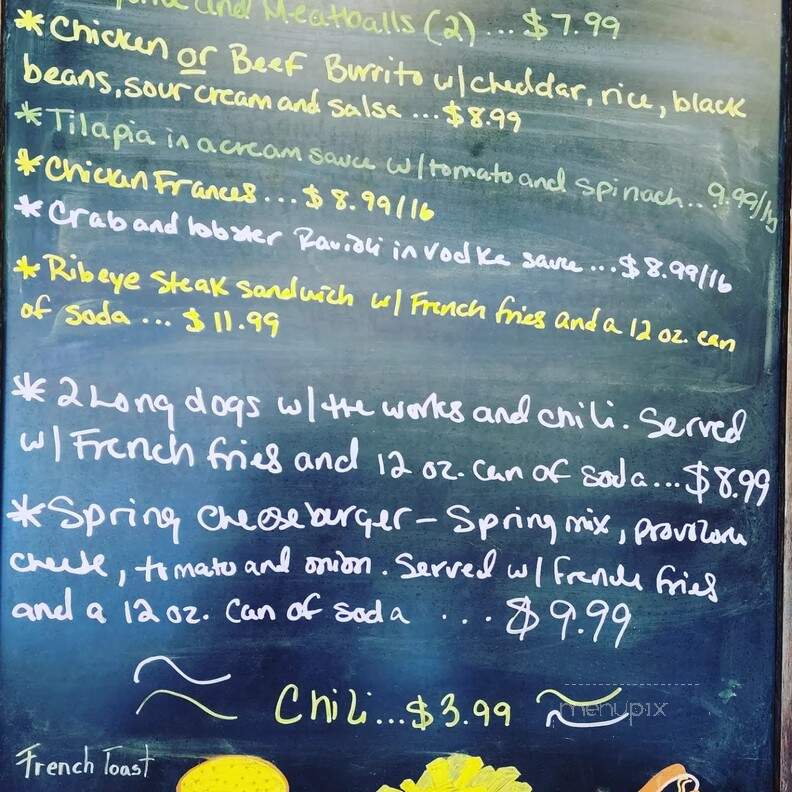 and Meatballs (2)...$7.99
*Chicken or Beef Burrito w/cheddar, rice, black
beans, sour cream and salsa ...$8.99
*Tilapia in a cream sauce w/tomato and spinach...9.99/lb
*Chicken Frances...$8.99/lb
*Crab and lobster Ravioli in vodka sauce ...$8.99/lb
*Ribeye Steak sandwich w/ French fries and a 12 oz. can
of soda ... $11.99
*2 Long dogs w/ the works and chili. Served
w/ French fries and 12 oz. can of soda...$8.99
*Spring cheeseburger - Spring mix, provolone
cheese, tomato and onion. Served w/ French fries
and a 12 oz. can of soda ... $9.99
Chili...$3.99
menupix
French Toast